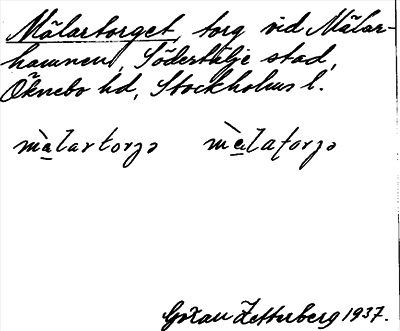 Mälartorget, torg vid Mälar-
hamnen, Södertälje stad,
Öknebo hd, Stockholms l.
mὰlartorʒə mὰlaʈorʒə
Göran Zetterberg 1937.